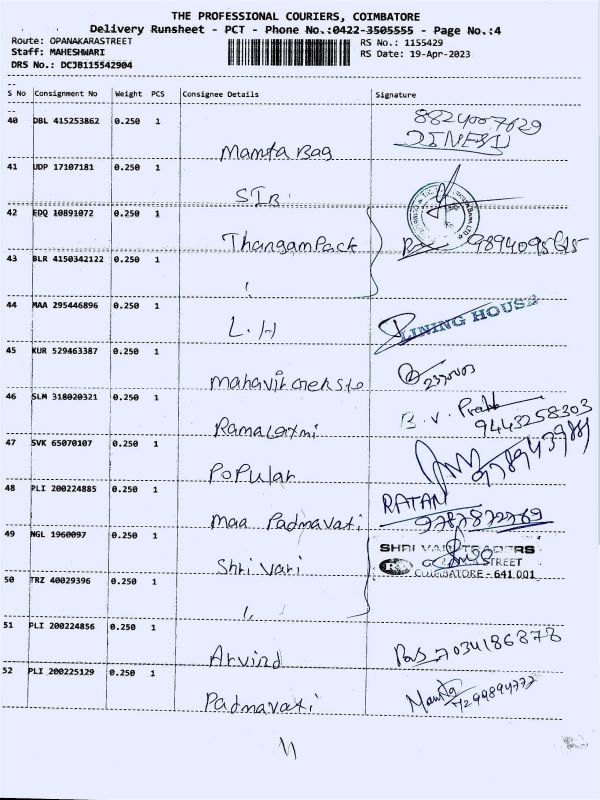 THE PROFESSIONAL COURIERS, COIMBATORE
Delivery Runsheet - PCT - Phone No.:0422-3505555 - Page No.:4
Route: OPANAKARASTREET
RS No.: 1155429
Staff: MAHESHWARI
RS Date: 19-Apr-2023
DRS No.: DCJB115542904
S No Consignment No Weight PCS Consignee Details Signature
40 DBL 415253862 0.250 1 Mamta Bag 8824007629
DINESH
41 UDP 17107181 0.250 1 SIB
42 EDQ 10891072 0.250 1 Thangam Pack
43 BLR 4150342122 0.250 1
44 MAA 295446896 0.250 1 L.H LINING HOUSE
45 KUR 529463387 0.250 1
46 SLM 318020321 0.250 1 Ramalaxmi B. V. 9443258303
47 SVK 65070107 0.250 1 Popular
48 PLI 200224885 0.250 1 Maa Padmavati RATAN
9787872769
49 NGL 1960097 0.250 1 Shri Vari SHRI VARI TRADERS
STREET
COIMBATORE - 641 001
50 TRZ 40029396 0.250 1
51 PLI 200224856 0.250 1 Arvind 7034186878
52 PLI 200225129 0.250 1 Padmavati Mamta